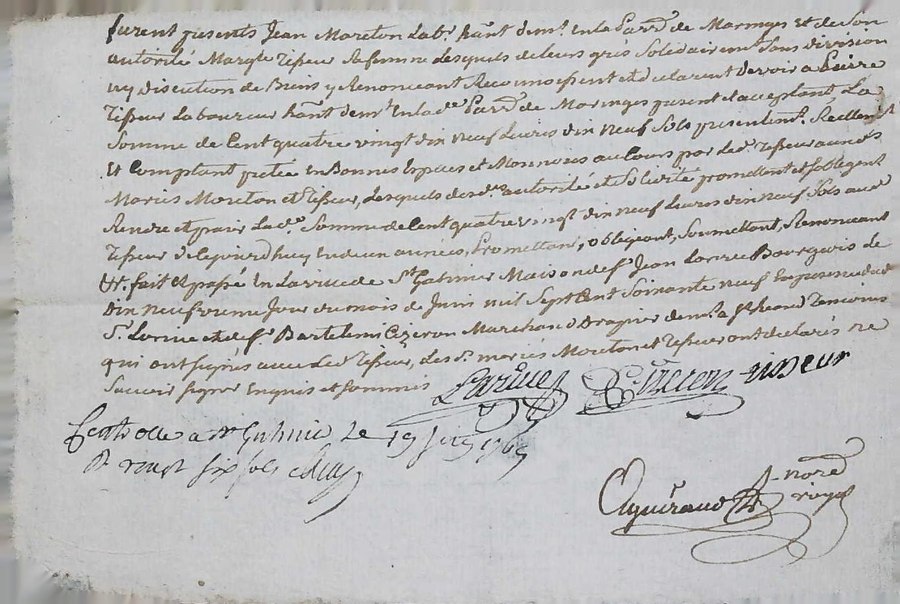 furent presents Jean Moreton Labr hant demt en la parsse de Maringes et de Son
autorité Margte Tisseur sa femme lesquels de leurs gris Solidairemt Sans division
ny discution de Biens y Renonceant Reconnoissent et declarent devoir a Pierre
Tisseur Laboureur hant demt en lade parsse de Maringes present et acceptant La
Somme de Cent quatre vingt dix neuf Livres dix neuf Sols presentemt Reellemt
Et Comptant pretée en Bonnes Espaces et Monnoies au Cours par Led. Tisseur auxds
Mariés Moreton et Tisseur, Lesquels desds autorité et Solidité promettent et Sobligent
Rendre et paier Lade Somme de Cent quatre vingt dix neuf Livres dix neuf Sols aud
Tisseur d'aujourdhuy en deux années, Promettant, obligeant, Soumettant, Renonceant
&c. fait et passé En La ville de St Galmier Maison de sr Jean Bourgeois de
dix neuvieme Jour du mois de Juin mil Sept Cent Soixante neuf En presence dud
Sr et de sr Bartelemi Cizeron Marchand Drapier demt a St
qui ont signés avec Led Tisseur, Les ds mariés Moreton et Tisseur ont declarés ne
Savoir signer Enquis et Sommés
Cizeron tisseur
Controllé a St Galmier Le 19 juin 1769
R vingt six sols
Aguiraud nore
royal